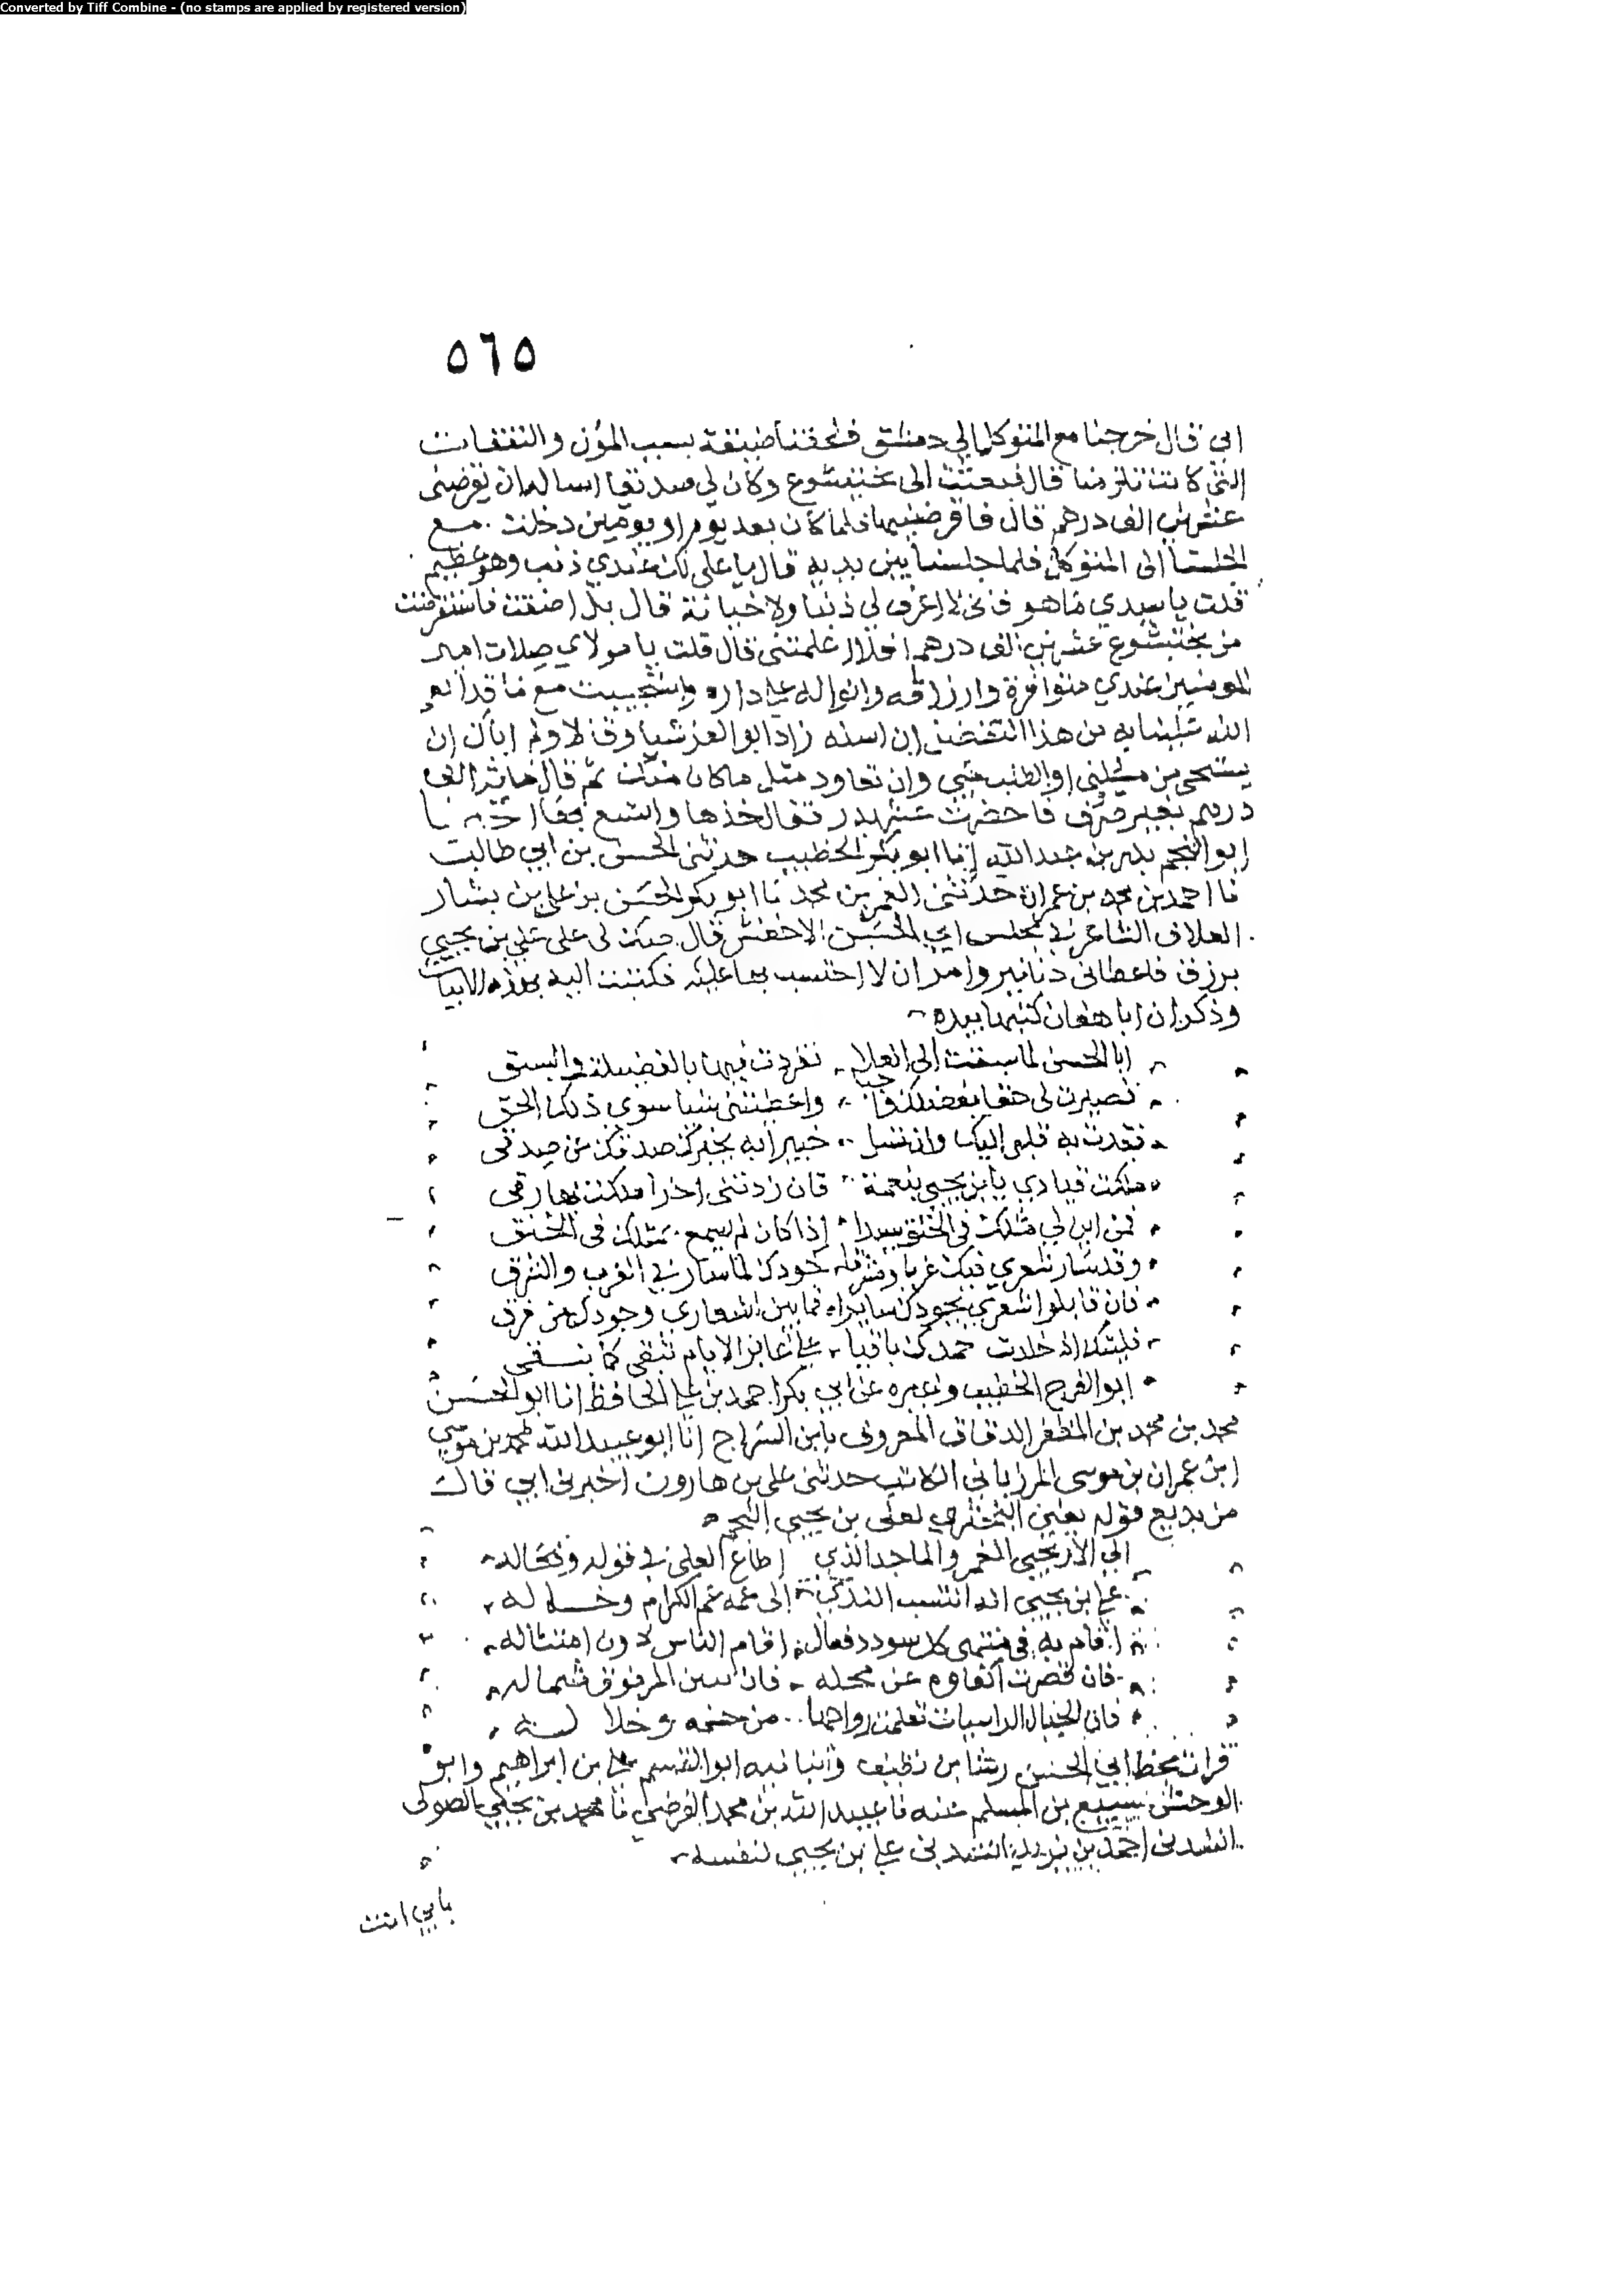 Converted by Tiff Combine - (no stamps are applied by registered version)
٥٦٥
ابي قال خرجنا مع المتوكل الي دمشق فلحقتنا ضيقة بسبب المؤن والنفقات
التي كانت تلزمنا قال فبعثت الى بختيشوع وكان لي صديقا اساله ان يقرضني
عشرين الف درهم قال فاقرضنيها فلما كان بعد يوم او يومين دخلت مع
الجلسا الى المتوكل فلما جلسنا بين يديه قال يا علي لك عندي ذنب وهو عظيم
قلت يا سيدي ما هو فاني لا اعرف لي ذنبا ولا خيانة قال بلى اضقت فاستقرضت
من بختيشوع عشرين الف درهم افلا اعلمتني قال قلت يا مولاي صلات امير
المومنين عندي متواترة وارزاقه وانزاله علي داره واستحييت مع ما قد انعم
الله علينا به من هذا التفضل ان اساله
ثم قال مائة الف
درهم بغير صرف فاحضرت عشر بدر فقال خذها واتسع بها
ابو النجم بدر بن عبد الله انا ابو بكر الخطيب حدثني الحسن بن ابي طالب
نا احمد بن محمد بن عمران حدثني العمر بن محمد نا ابو بكر الحسن بن علي بن بشار
العلاف الشاعر في مجلس ابي الحسن الاخفش قال حكت لي علي علي بن يحيى
برزق فاعطاني دنانير وامر ان لا احتسب بها عليه فكتبت اليه بهذه الابيات
وذكر ان ابا هفان كتبها بيده
ابا الحسن لما سبقت الي العلا تفردت فيها بالفضيلة والسبق
فصيرت لي حقا بفضلك واجبا واعطيتني شيا سوي ذلك الحق
فقدت به قلبي اليك وان تسل خبيرا به يخبرك صدقك عن صدقي
ملكت قيادي يا بن يحيى بنعمة فان زدتني اخرا ملكت بها رقي
فمن اين لي مثلك في الخلق سيدا اذا كان لم يسمع بمثلك في الخلق
وقد سار شعري فيك غربا ومشرقا كجودك لما سار في الغرب والشرق
فان قابلوا شعري بجودك سايرا فما بين اشعاري وجودك من فرق
فليتك اذ خلدت حمدك باقيا علي غابر الايام تبقى كما يبقى
ابو الفرج الخطيب وغيره عن ابي بكر احمد بن علي الحافظ انا ابو الحسن
محمد بن محمد بن المظفر الدقاق المعروف بابن السراج انا ابو عبيد الله محمد بن موسي
ابن عمران بن موسى المرزباني الكاتب حدثني علي بن هارون اخبرني ابي قال
من بديع قوله يعني البحتري لعلي بن يحيى المنجم
الي الاريحي الغمر والماجد الذي اطاع العلى في قوله وفعاله
علي بن يحيى انه انتسب الندى الى عمه عم الكرام وخاله
اقام به في منتهى كل سودد فعال اقام الناس دون امتثاله
فان قصرت اكفاوه عن محله فان يمين المرء فوق شماله
فان الجبال الراسيات تعلمت رواجحها من حلمه وخلاله
قرات بخط ابي الحسن رشا بن نظيف وانبا نيه ابو القسم علي بن ابراهيم وابو
الوحش سبيع بن المسلم عنه نا عبيد الله بن محمد الفرضي نا محمد بن يحيى الصولي
انشدني احمد بن يزيد انشدني علي بن يحيى لنفسه
بابي انت